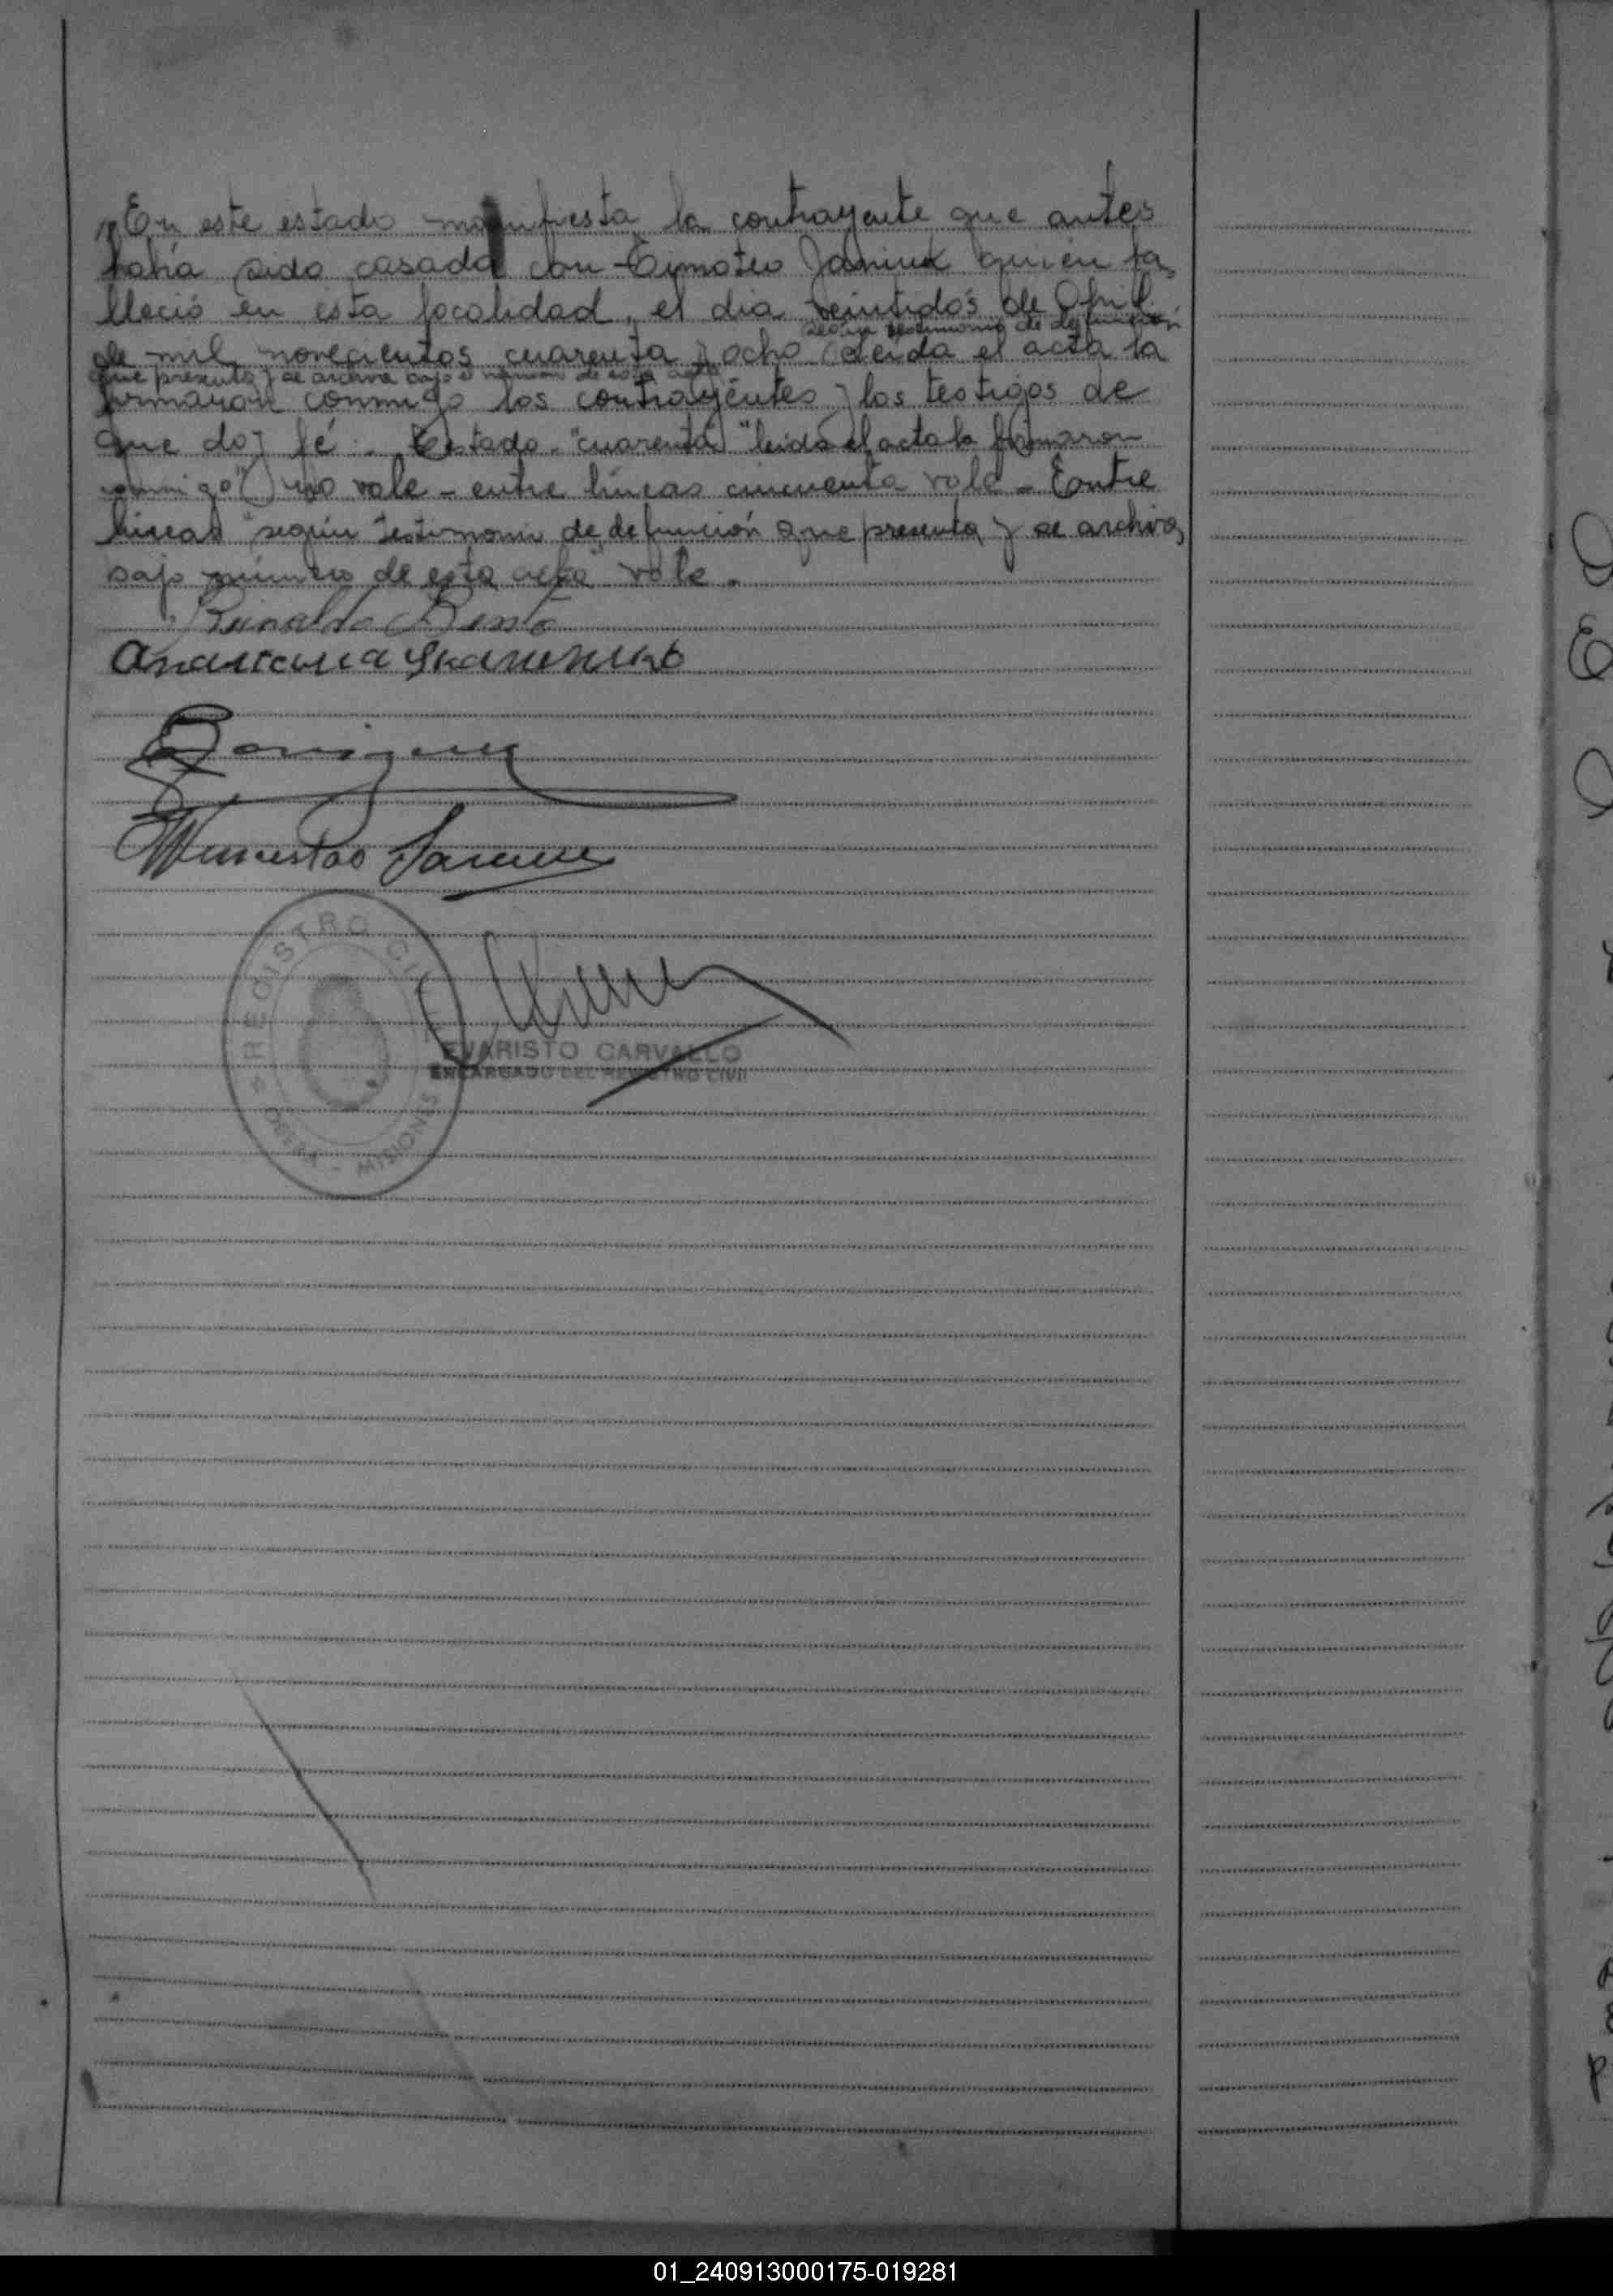 En este estado manifiesta la contrayente que antes
había sido casada con Timoteo Janiuk quien fa
lleció en esta localidad, el día veintidós de Abril
según testimonio de defunción
de mil novecientos cuarenta y ocho Leída el acta la
que presenta y se archiva bajo el número de esta acta
firmaron conmigo los contrayentes y los testigos de
que doy fé. Testado "cuarenta" "leída el acta la firmaron
conmigo" no vale - entre líneas cincuenta vale - Entre
líneas "según testimonio de defunción que presenta y se archiva
bajo número de esta acta" vale.
REGISTRO CIVIL
EVARISTO CARVALLO
ENCARGADO DEL REGISTRO CIVIL
OBERA - MISIONES
01_240913000175-019281